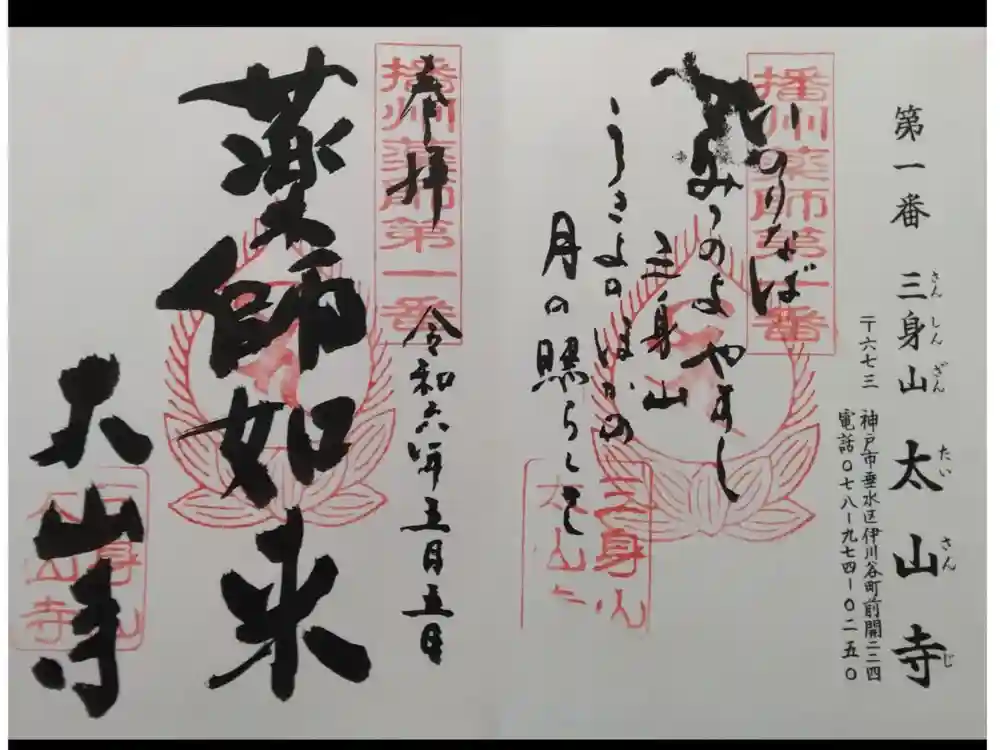 第一番 三身山 太山寺
さんしんざん たいさんじ
〒六七三 神戸市垂水区伊川谷町前開二二四
電話〇七八ー九七四ー〇二五〇
播州薬師第一番
いのりなば
みつのよやすし
三身山
うきよのほかの
月の照らして
三身山
太山寺
播州薬師第一番
奉拝 令和六年五月五日
薬師如来
太山寺
三身山
太山寺